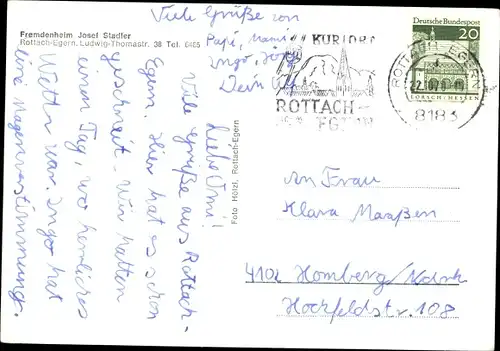 Fremdenheim Josef Stadler
Rottach-Egern, Ludwig-Thomastr. 38 Tel. 6465
Viele Grüße von
Papi, Mami
Ingo, 
Dein
Liebe Omi!
Viele Grüße aus Rottach-
Egern. Hier hat es schon
geschneit. Wir hatten
einen Tag, wo herrliches
Wetter war. Ingo hat
eine Magenverstimmung.
Foto Hölzl, Rottach-Egern
KURORT
ROTTACH-
EGERN
Deutsche Bundespost
20
LORSCH/HESSEN
ROTTACH-EGERN
8183
An Frau
Klara Maaßen
4102 Homberg/Ndrh
Hochfeldstr. 108